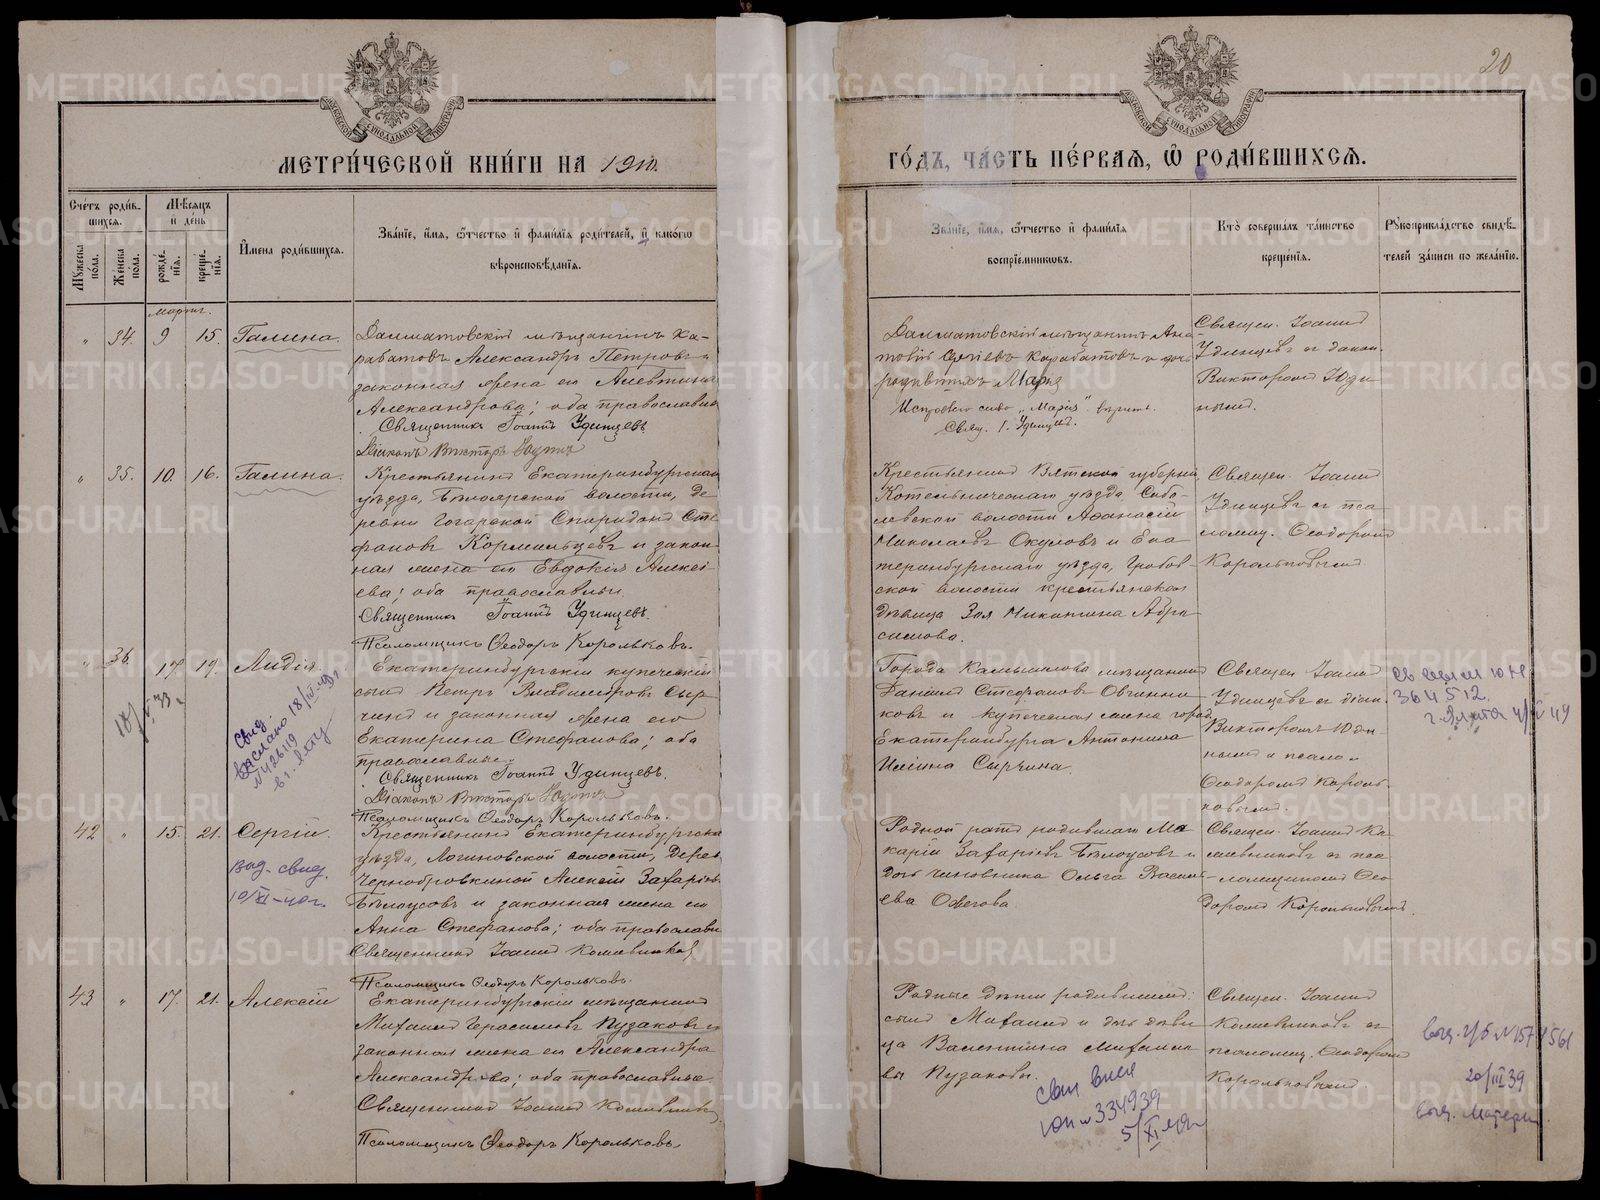 20
МЕТРИ́ЧЕСКОЙ КНИ́ГИ НА 1910.
ГО́ДЪ, ЧА́СТЬ ПЕ́РВАЯ, Ѿ РОДИ́ВШИХСЯ.
Сче́тъ роди́вшихся.
Му́жеска пола.
Же́нска пола.
Мѣ́сяцъ и҆ де́нь
рожде́нїя.
креще́нїя.
И҆мена роди́вшихся.
Зва́нїе, и҆́мя, ѻ҆́тчество и҆ фами́лїя роди́телей, и҆ како́гѡ
вѣроисповѣ́данїя.
Зва́нїе, и҆́мя, ѻ҆́тчество и҆ фами́лїя
воспрїе́мникѡвъ.
Кто̀ соверша́лъ та́инство
креще́нїя.
Рꙋкоприкла́дство свидѣ́телей за́писи по жела́нїю.
мартъ.
" 34. 9 15. Галина.
Далматовскій мѣщанинъ Ка-
рабатовъ Александръ Петровъ и
законная жена его Алевтина
Александрова; оба православные
Священникъ Іоаннъ Удинцевъ.
Діаконъ Викторъ Юдинъ
Далматовскій мѣщанинъ Ана-
толій Сергіевъ Карабатовъ и дочь
родившихъ Марья
Исправлено слово „Марія" вѣрить.
Свящ. І. Удинцевъ.
Священ. Іоаннъ
Удинцевъ съ діакон.
Викторомъ Юди-
нымъ.
" 35. 10. 16. Галина.
Крестьянинъ Екатеринбургскаго
уѣзда, Бѣлоярской волости, де-
ревни Гагарской Спиридонъ Сте-
фановъ Кормильцевъ и закон-
ная жена его Евдокія Алексѣ-
ева; оба православные.
Священникъ Іоаннъ Удинцевъ.
Псаломщикъ Ѳеодоръ Корольковъ.
Крестьянинъ Вятской губерніи
Котельническаго уѣзда
волости Аѳанасій
Николаевъ Окуловъ и Ека-
теринбургскаго уѣзда, Гробов-
ской волости крестьянская
дѣвица Зоя Никитина Абра-
симова.
Священ. Іоаннъ
Удинцевъ съ пса-
ломщ. Ѳеодоромъ
Корольковымъ
" 36. 17. 19. Лидія.
Екатеринбургскій купеческій
сынъ Петръ Владиміровъ Сыр-
чинъ и законная жена его
Екатерина Стефанова; оба
православные.
Священникъ Іоаннъ Удинцевъ.
Діаконъ Викторъ Юдинъ
Псаломщикъ Ѳеодоръ Корольковъ.
Города Камышлова мѣщанинъ
Даніилъ Стефановъ Овчинни-
ковъ и купеческая жена города
Екатеринбурга Антонина
Ильина Сырчина.
Священ. Іоаннъ
Удинцевъ съ діак.
Викторомъ Юди-
нымъ и псалом.
Ѳеодоромъ Король-
ковымъ.
Свид.
выслано 18/
№426119
в г. Ялту
364512
г. Ялта
42 " 15. 21. Сергій.
Выд. свид.
10/XI-40г.
Крестьянинъ Екатеринбургскаго
уѣзда, Логиновской волости, дерев.
Чернобровкиной Алексій Захаріевъ
Бѣлоусовъ и законная жена его
Анна Стефанова; оба православн.
Священникъ Іоаннъ Кожевниковъ
Псаломщикъ Ѳеодоръ Корольковъ.
Родной братъ родившаго Ма-
карій Захаріевъ Бѣлоусовъ и
дочь чиновника Ольга Василь-
ева
Священ. Іоаннъ Ко-
жевниковъ съ пса-
ломщикомъ Ѳео-
доромъ Корольковымъ.
43 " 17. 21. Алексій
Екатеринбургскій мѣщанинъ
Михаилъ Герасимовъ Пузаковъ и
законная жена его Александра
Александрова; оба православные.
Священникъ Іоаннъ Кожевниковъ
Псаломщикъ Ѳеодоръ Корольковъ.
Родные дѣти родившихъ:
сынъ Михаилъ и дочь дѣви-
ца Валентина Михайло-
вы Пузаковы.
Священ. Іоаннъ
Кожевниковъ съ
псаломщ. Ѳеодоромъ
Корольковымъ
334939
5/XI
20/III 39
выд. матери
METRIKI.GASO-URAL.RU